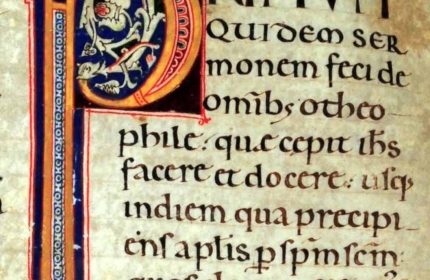 P
QUIDEM SER
monem feci de
omib; otheo
phile. quę cepit ihs
facere et docere. usq
indiem qua precipi
ens aplis p spm scm